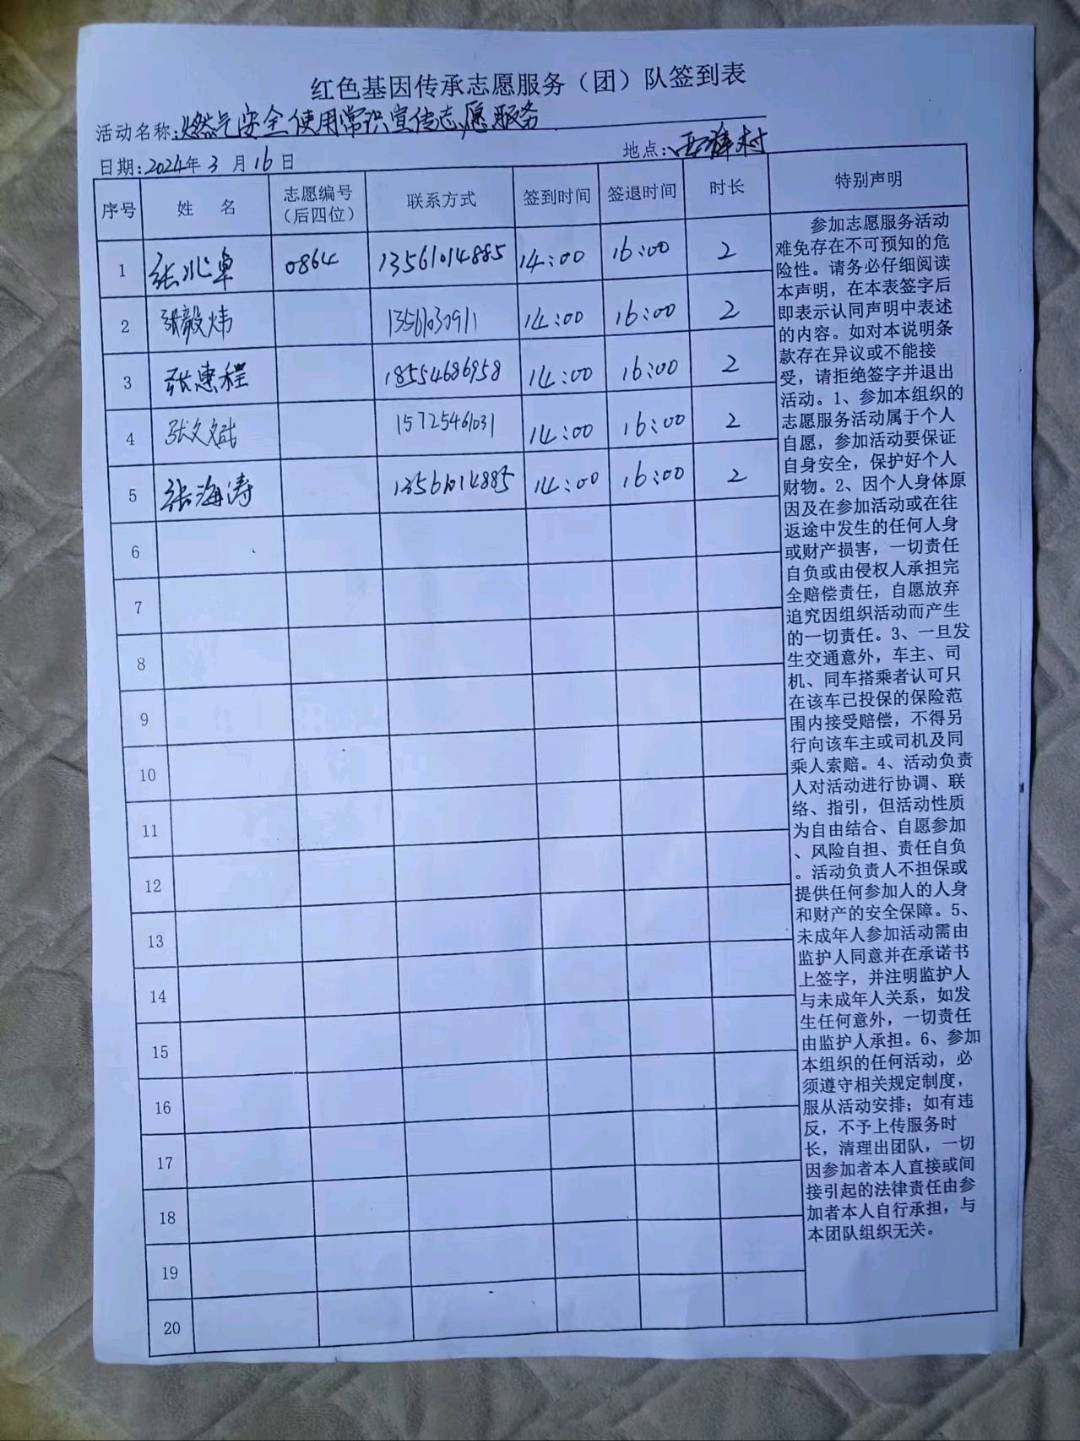 红色基因传承志愿服务（团）队签到表
活动名称:燃气安全使用常识宣传志愿服务
日期:2024年3月16日 地点:西 村
序号 姓 名 志愿编号（后四位） 联系方式 签到时间 签退时间 时长 特别声明
1 张兆卓 0864 13561014885 14:00 16:00 2
2 张毅炜 13561030911 14:00 16:00 2
3 张惠程 18554686958 14:00 16:00 2
4 张文斌 15725461031 14:00 16:00 2
5 张海涛 13561014885 14:00 16:00 2
6
7
8
9
10
11
12
13
14
15
16
17
18
19
20
参加志愿服务活动
难免存在不可预知的危
险性。请务必仔细阅读
本声明，在本表签字后
即表示认同声明中表述
的内容。如对本说明条
款存在异议或不能接
受，请拒绝签字并退出
活动。1、参加本组织的
志愿服务活动属于个人
自愿，参加活动要保证
自身安全，保护好个人
财物。2、因个人身体原
因及在参加活动或在往
返途中发生的任何人身
或财产损害，一切责任
自负或由侵权人承担完
全赔偿责任，自愿放弃
追究因组织活动而产生
的一切责任。3、一旦发
生交通意外，车主、司
机、同车搭乘者认可只
在该车已投保的保险范
围内接受赔偿，不得另
行向该车主或司机及同
乘人索赔。4、活动负责
人对活动进行协调、联
络、指引，但活动性质
为自由结合、自愿参加
、风险自担、责任自负
。活动负责人不担保或
提供任何参加人的人身
和财产的安全保障。5、
未成年人参加活动需由
监护人同意并在承诺书
上签字，并注明监护人
与未成年人关系，如发
生任何意外，一切责任
由监护人承担。6、参加
本组织的任何活动，必
须遵守相关规定制度，
服从活动安排；如有违
反，不予上传服务时
长，清理出团队，一切
因参加者本人直接或间
接引起的法律责任由参
加者本人自行承担，与
本团队组织无关。